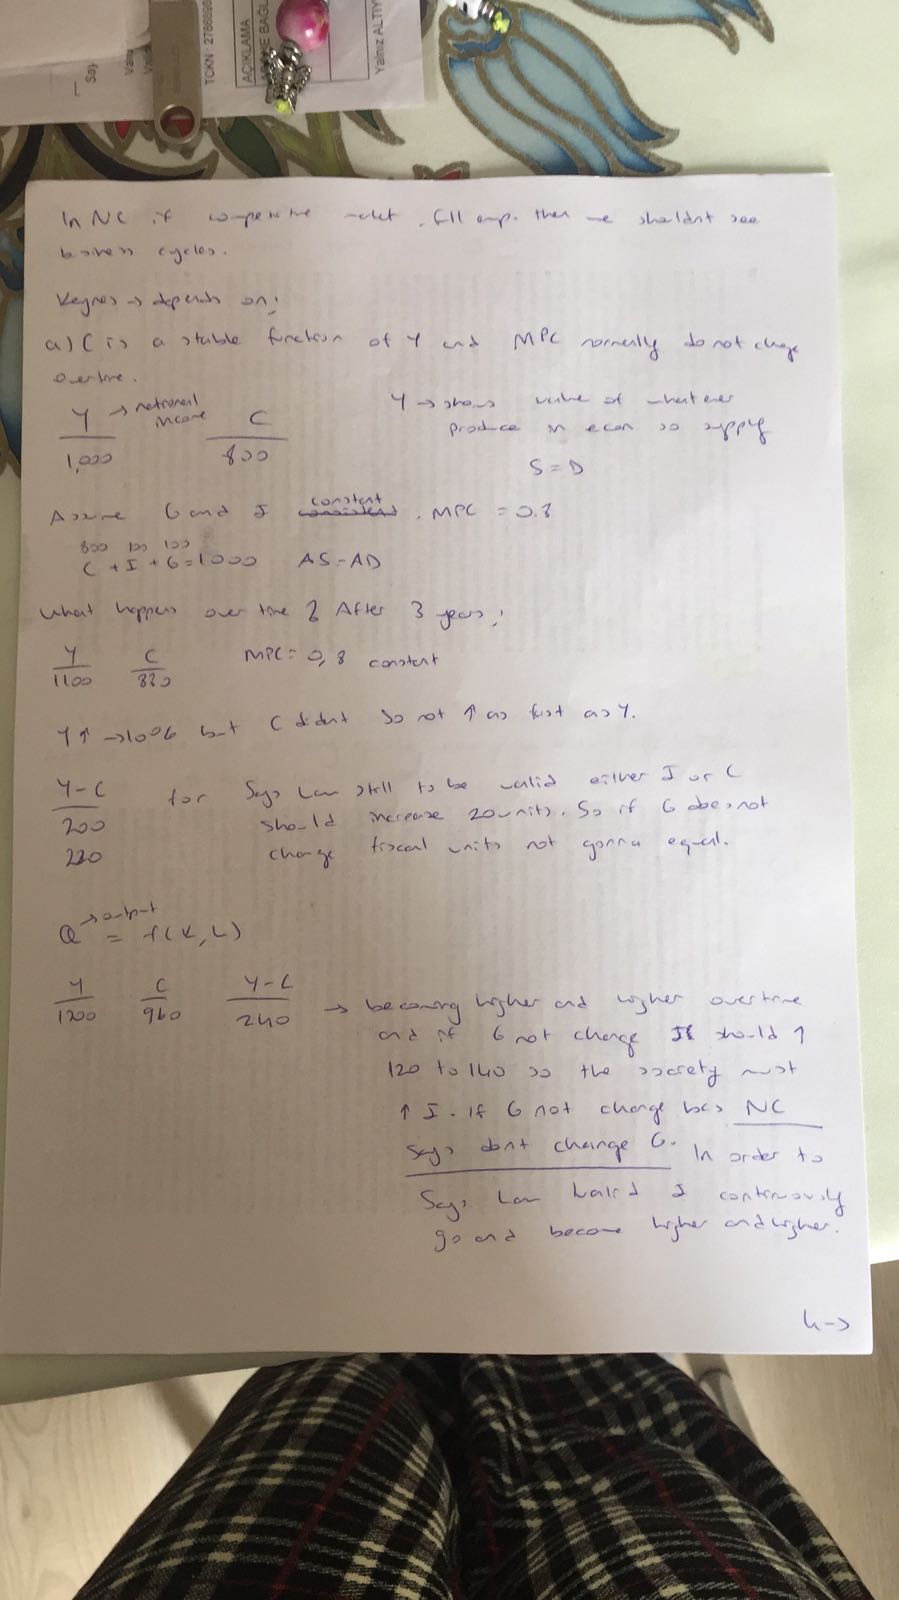 Say
TCKN : 2786899
AÇIKLAMA
Yalnız ALTIY
In NC if competitive market, full emp. then we shouldnt see
business cycles.
Keynes → depends on;
a) C is a stable function of Y and MPC normally do not change
overtime.
Y → national income
C
1,000
800
Y → shows value of whatever
produce in econ so supply
S = D
Assume G and I constant consistend, MPC = 0.8
800 100 100
C + I + G = 1000 AS = AD
What happens over time? After 3 years;
Y C MPC = 0,8 constant
1100 880
Y↑ → 10% but C didnt so not ↑ as fast as Y.
Y-C
200
220
for Says Law still to be valid either I or C
should increase 20 units. So if G does not
change fiscal units not gonna equal.
Q → output = f(K, L)
Y C Y-C
1200 960 240
→ becoming higher and higher overtime
and if G not change I should ↑
120 to 140 so the society must
↑ I. If G not change bcs NC
says dont change G. In order to
Says Law valid I continuously
go and become higher and higher.